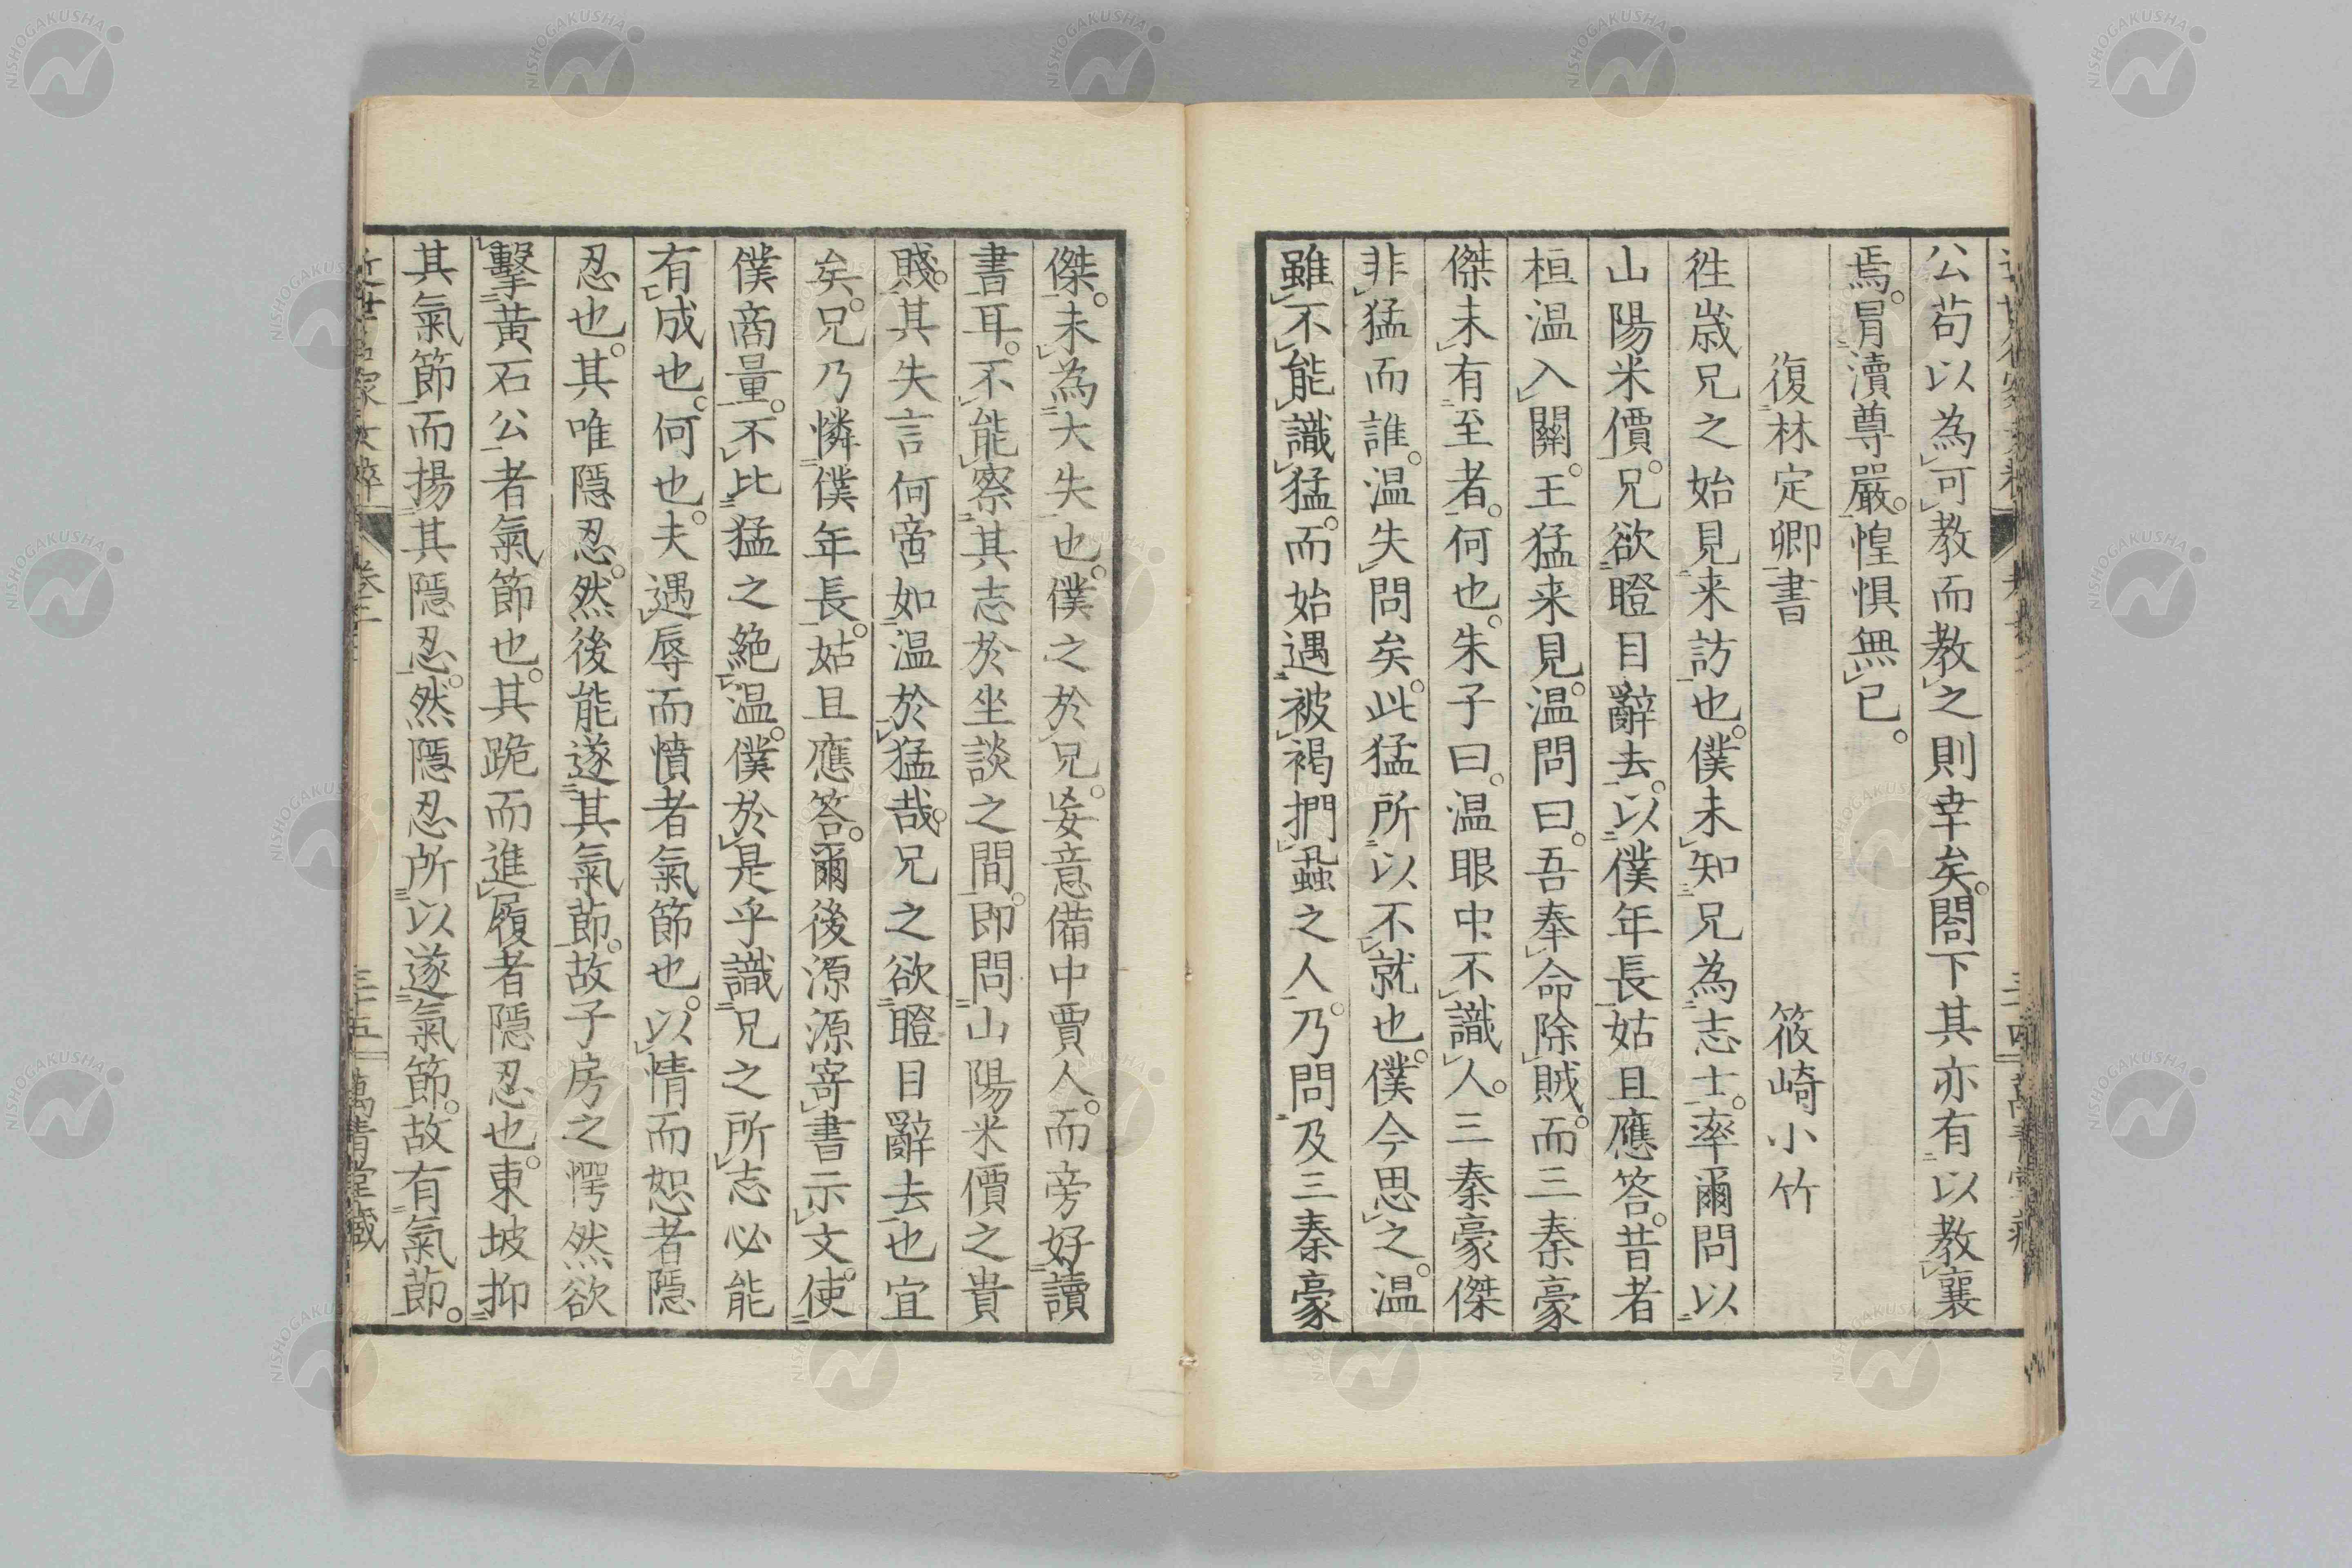 公苟以為可教而教之則幸矣。閤下其亦有以教襄
焉。冒瀆尊嚴。惶惧無已。
復林定卿書　筱崎小竹
徃歳兄之始見来訪也。僕未知兄為志士。率爾問以
山陽米價。兄欲瞪目辭去。以僕年長姑且應答。昔者
桓温入關。王猛来見。温問曰。吾奉命除賊。而三秦豪
傑未有至者。何也。朱子曰。温眼中不識人。三秦豪傑
非猛而誰。温失問矣。此猛所以不就也。僕今思之。温
雖不能識猛。而始遇被褐捫蝨之人。乃問及三秦豪
傑。未為大失也。僕之於兄。妄意備中賈人。而旁好讀
書耳。不能察其志於坐談之間。即問山陽米價之貴
賤。其失言何啻如温於猛哉。兄之欲瞪目辭去也宜
矣。兄乃憐僕年長。姑且應答。爾後源源寄書示文。使
僕商量。不比猛之絶温。僕於是乎識兄之所志必能
有成也。何也。夫遇辱而憤者氣節也。以情而恕者隱
忍也。其唯隱忍。然後能遂其氣節。故子房之愕然欲
擊黄石公者氣節也。其跪而進履者隱忍也。東坡抑
其氣節而揚其隱忍。然隱忍所以遂氣節。故有氣節。
近世名家文粹　卷二　三十五　萬青堂藏
NISHOGAKUSHA